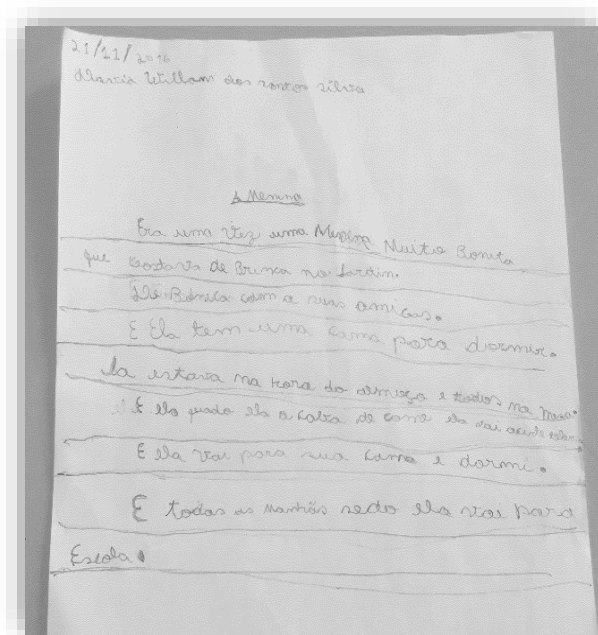 21/11/2016
Marcia Willam dos santos silva
A Menina
Era uma vez uma Menina Muito Bonita
que gostava de Brinca no Jardin.
De Boneca com a suas amigas.
E Ela tem uma cama para dormir.
Ja estava na hora do almoço e todos na mesa.
E ela quado ela a caba de come ela vai
E ela vai para sua cama e dormi.
E todas as manhãs sedo ela vai para
Escola.